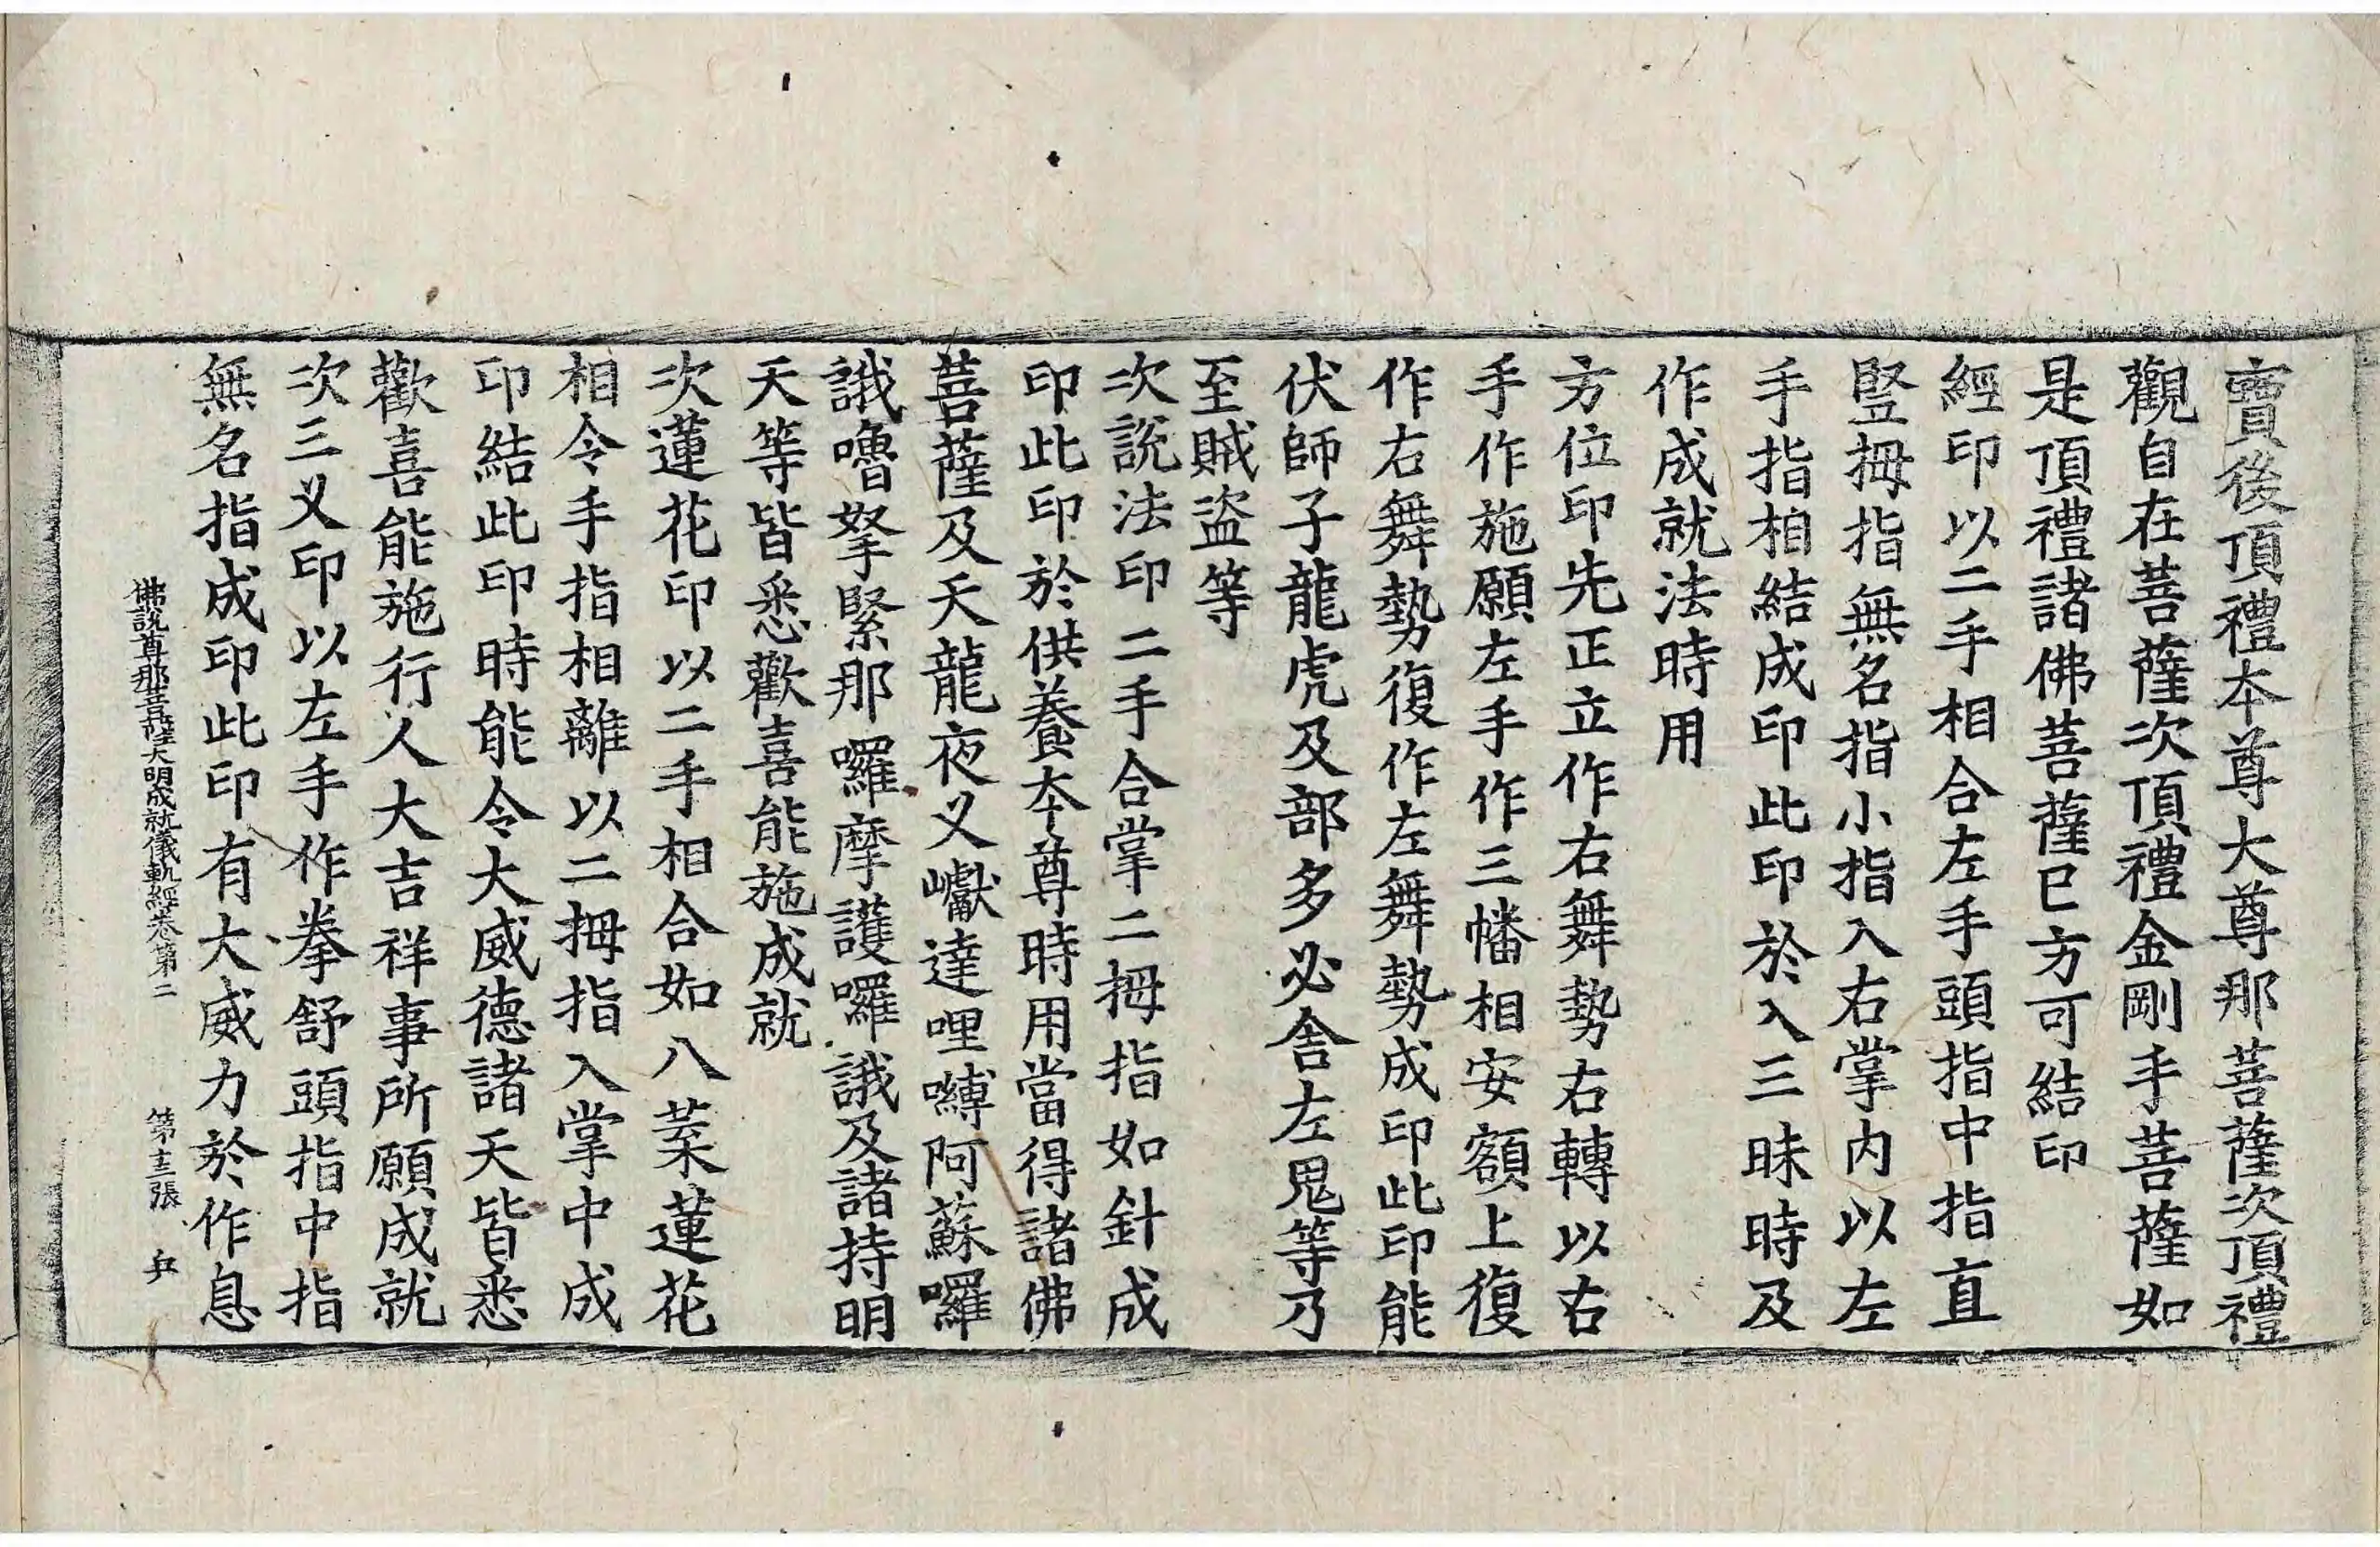 寶後頂禮本尊大尊那菩薩次頂禮
觀自在菩薩次頂禮金剛手菩薩如
是頂禮諸佛菩薩已方可結印
經印以二手相合左手頭指中指直
豎拇指無名指小指入右掌內以左
手指相結成印此印於入三昧時及
作成就法時用
方位印先正立作右舞勢右轉以右
手作施願左手作三幡相安額上復
作右舞勢復作左舞勢成印此印能
伏師子龍虎及部多必舍左鬼等乃
至賊盜等
次說法印二手合掌二拇指如針成
印此印於供養本尊時用當得諸佛
菩薩及天龍夜叉巘達哩嚩阿蘇囉
誐嚕拏緊那囉摩護囉誐及諸持明
天等皆悉歡喜能施成就
次蓮花印以二手相合如八葉蓮花
相令手指相離以二拇指入掌中成
印結此印時能令大威德諸天皆悉
歡喜能施行人大吉祥事所願成就
次三叉印以左手作拳舒頭指中指
無名指成印此印有大威力於作息
佛說尊那菩薩大明成就儀軌經卷第二 第十三張 兵